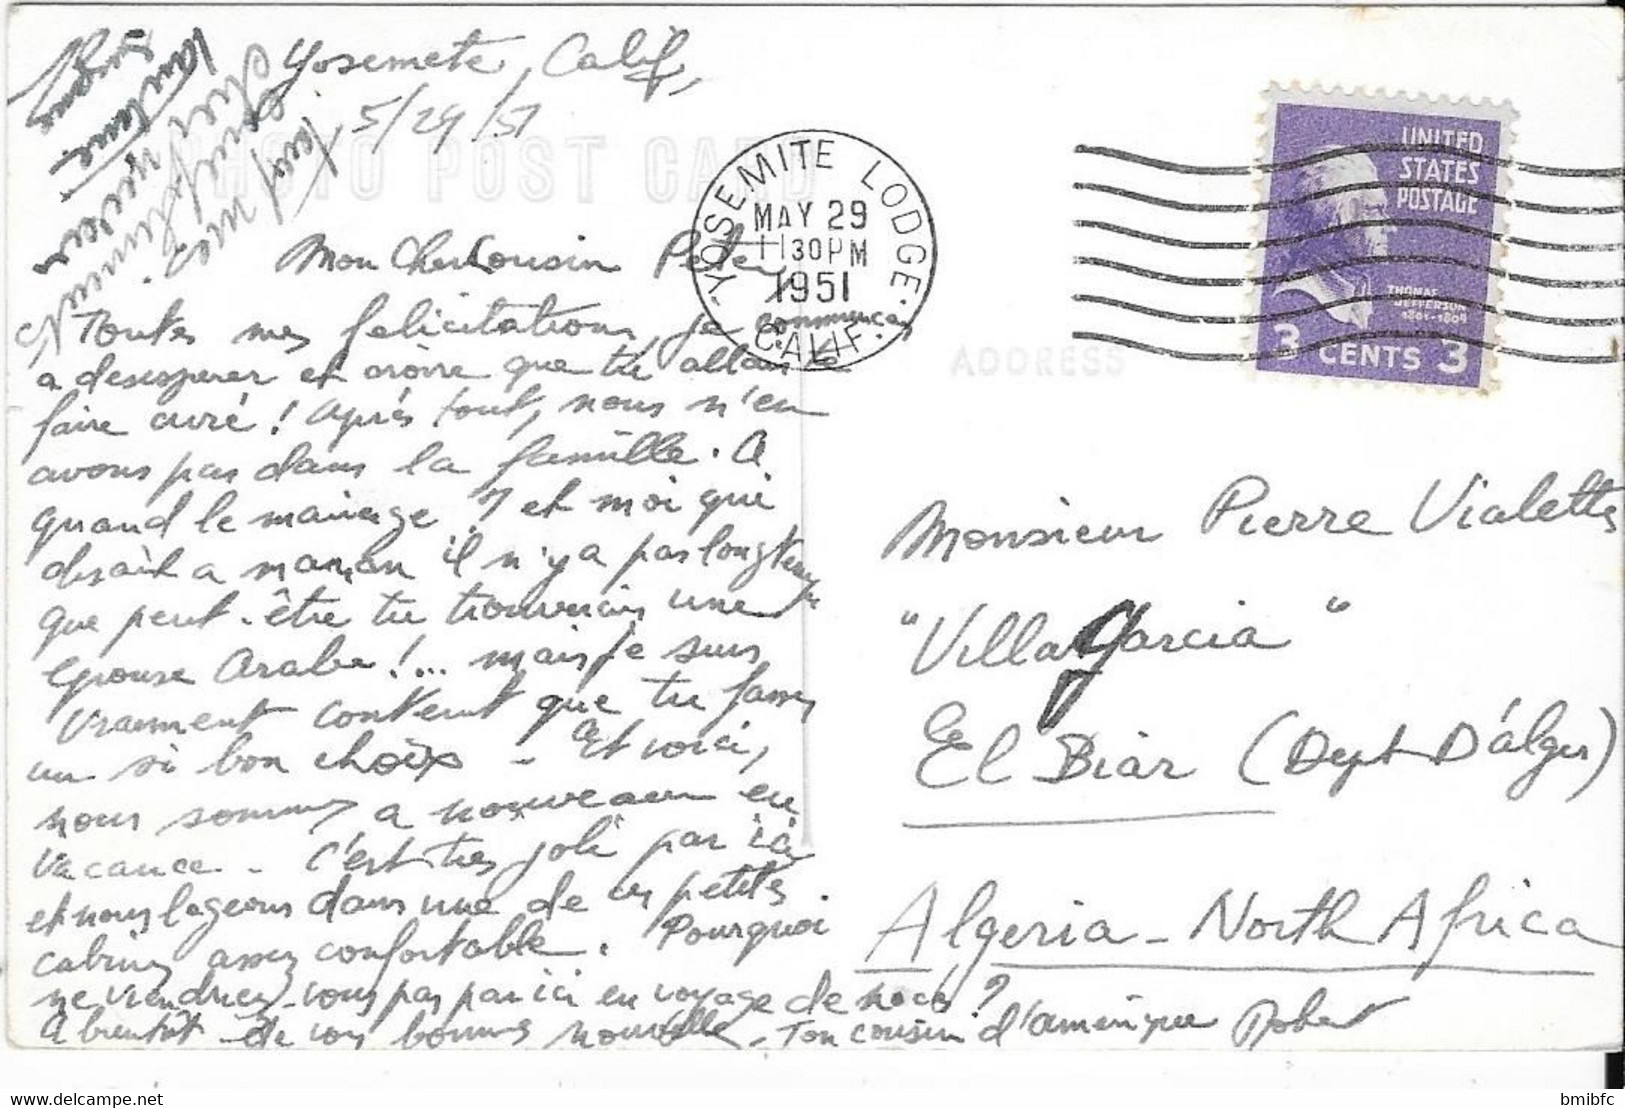 Yosemete, Calif,
5/29/51
PHOTO POST CARD
YOSEMITE LODGE
MAY 29
1130PM
1951
CALIF.
UNITED
STATES
POSTAGE
THOMAS
JEFFERSON
1801-1809
3 CENTS 3
ADDRESS
Mon Cher Cousin
Toutes mes felicitations, je commencais
a desesperer et croire que tu allais te
faire curé! Après tout, nous n'en
avons pas dans la famille. A
quand le mariage? et moi qui
disait a maman il n'y a pas longtemps
que peut-être tu trouverais une
epouse Arabe!... mais je suis
vraiment content que tu fasses
un si bon choix - Et voici,
nous sommes a nouveau en
vacance - C'est très joli par ici
et nous logeons dans une de ces petites
cabines assez confortable. Pourquoi
ne viendriez-vous pas par ici en voyage de noces?
A bientôt - de vos bonnes nouvelle - Ton cousin d'amérique Robert
Monsieur Pierre Vialette
"Villa Garcia"
El Biar (Dept D'Alger)
Algeria - North Africa
bmibfc